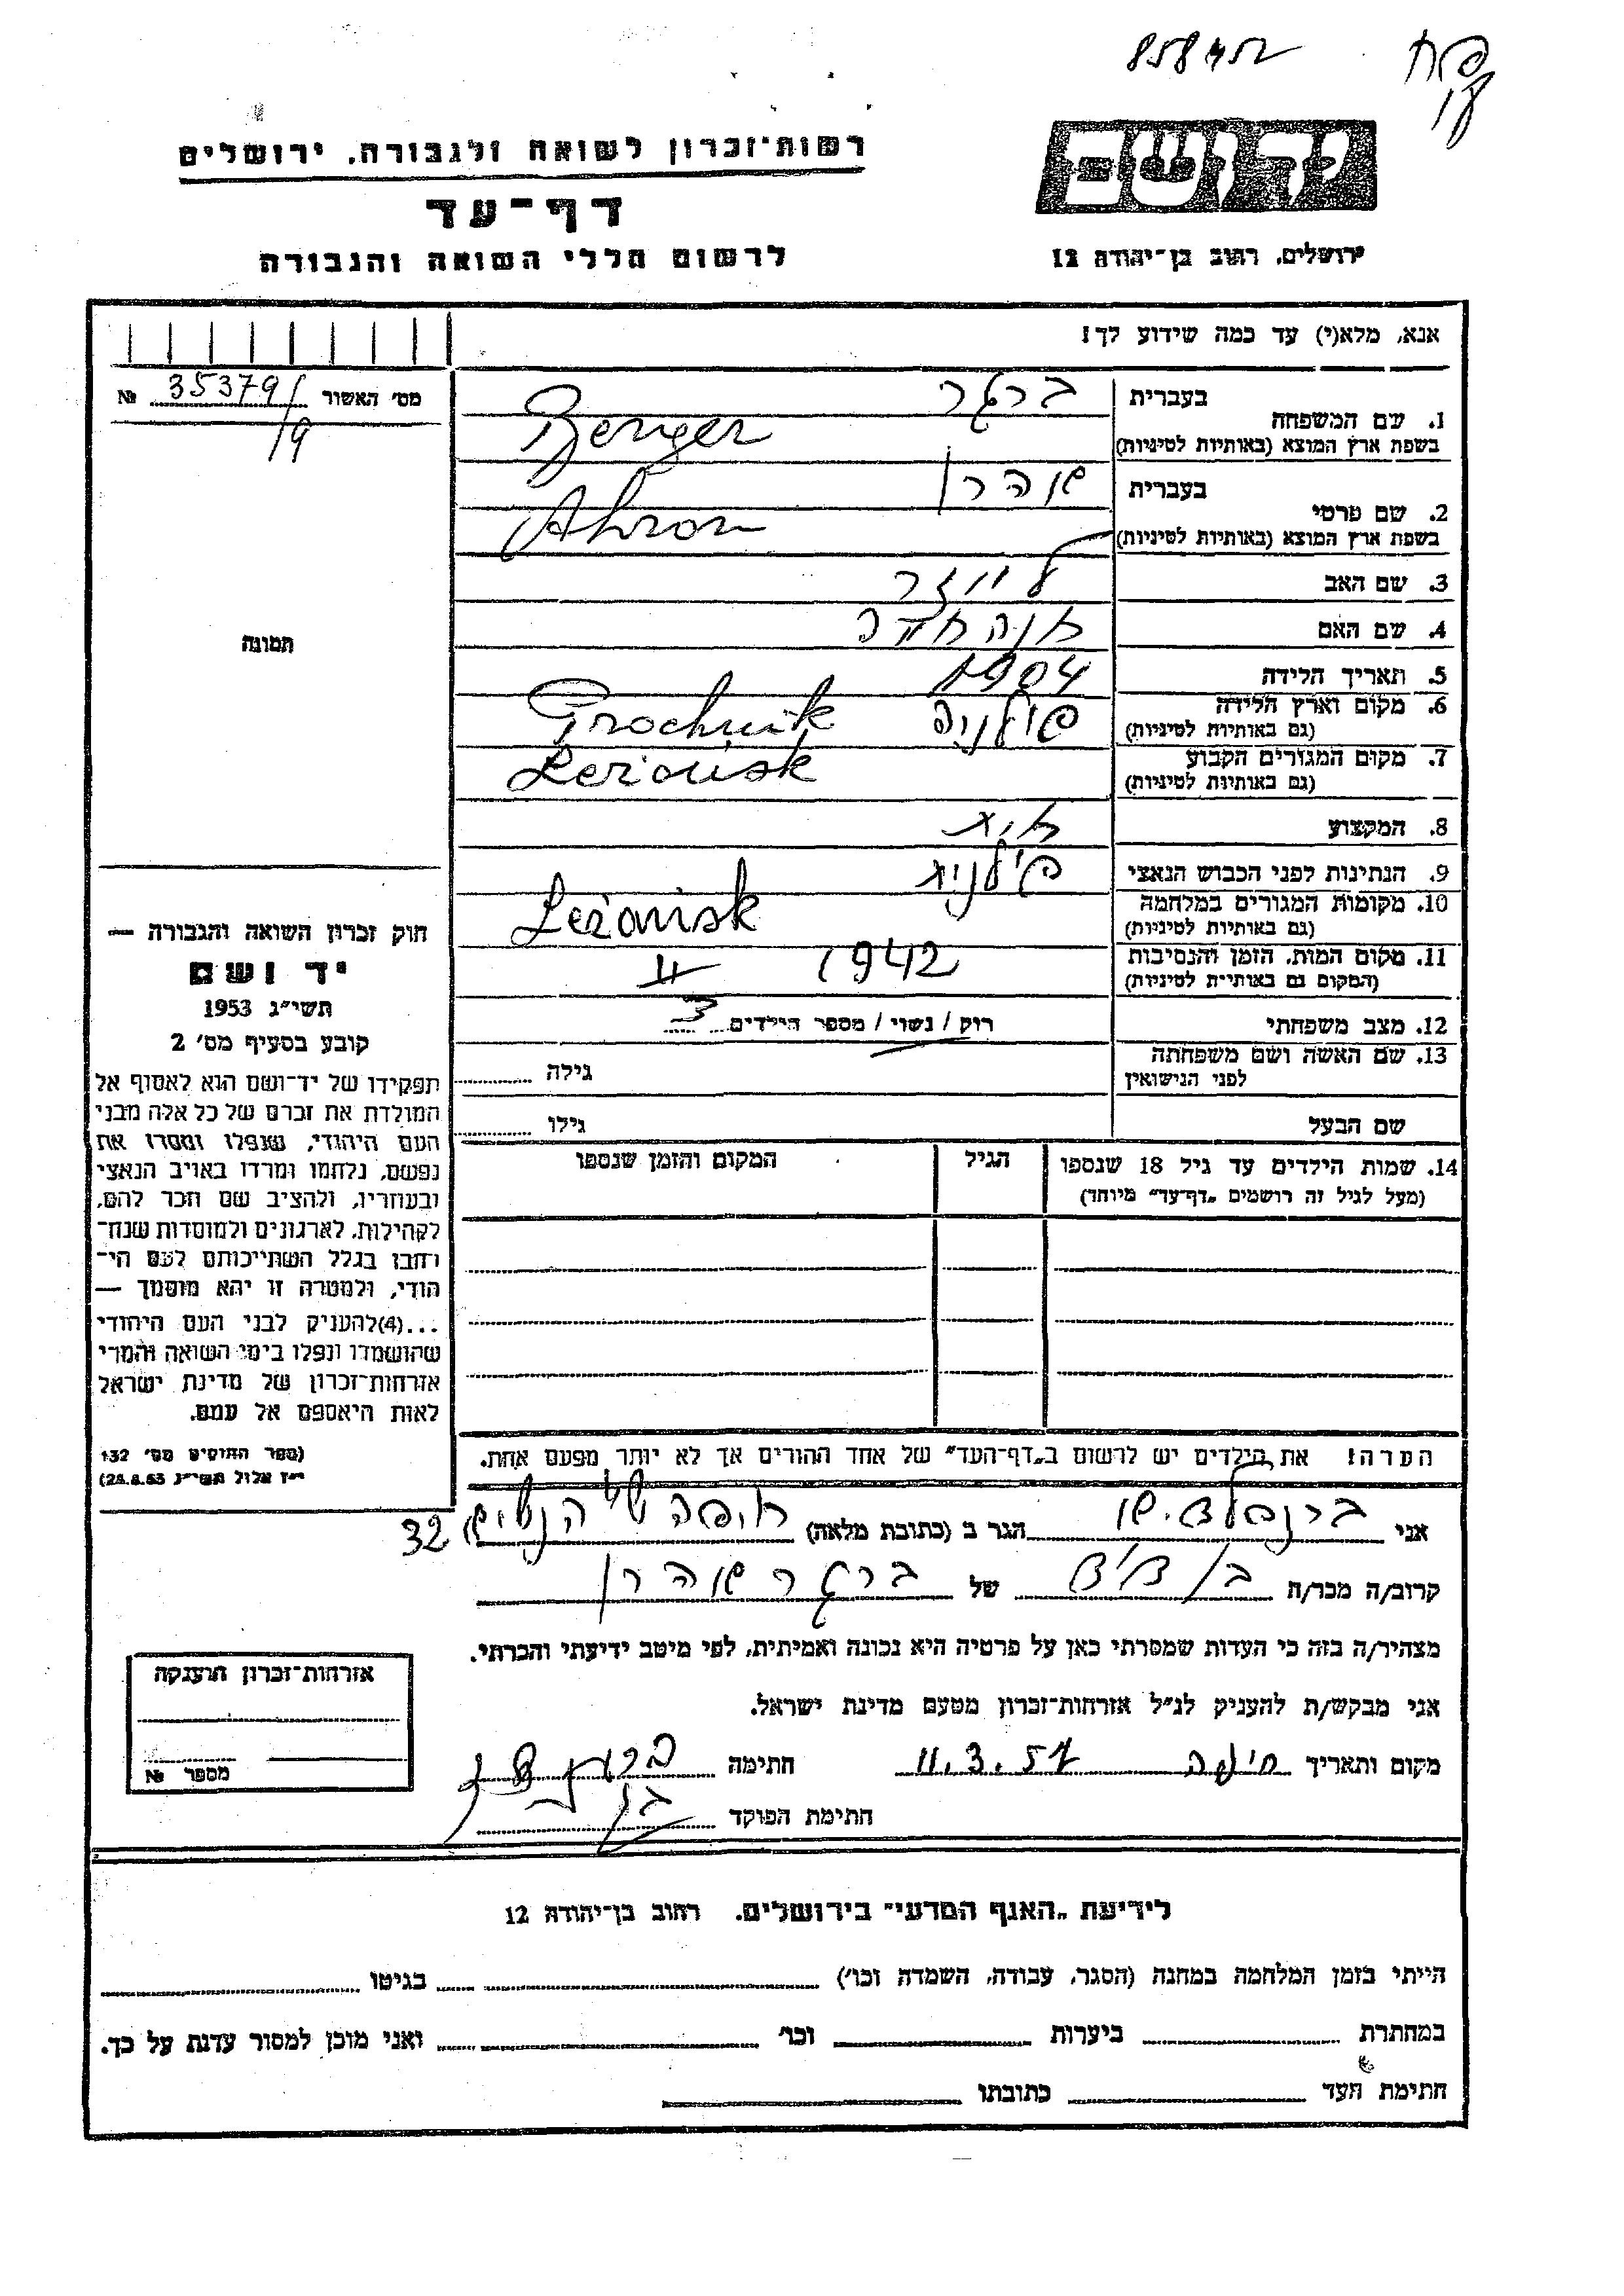 858452
רשות־זכרון לשואה ולגבורה, ירושלים
דף־עד
לרשום חללי השואה והגבורה
ידושם
ירושלים, רחוב בן־יהודה 12
אנא, מלא(י) עד כמה שידוע לך!
מס׳ האשור 35379/ №
19
1. שם המשפחה
בעברית ברגר
בשפת ארץ המוצא (באותיות לטיניות) Berger
2. שם פרטי
בעברית אהרן
בשפת ארץ המוצא (באותיות לטיניות) Ahron
3. שם האב לייזר
4. שם האם
5. תאריך הלידה 1904
6. מקום וארץ הלידה פולניה
(גם באותיות לטיניות)
7. מקום המגורים הקבוע Leżaisk
(גם באותיות לטיניות)
8. המקצוע חיט
9. הנתינות לפני הכבוש הנאצי פולנית
10. מקומות המגורים במלחמה Leżaisk
(גם באותיות לטיניות)
11. מקום המות, הזמן והנסיבות 1942 〃
(המקום גם באותיות לטיניות)
12. מצב משפחתי רוק / נשוי / מספר הילדים 3
13. שם האשה ושם משפחתה גילה
לפני הנישואין
שם הבעל גילו
14. שמות הילדים עד גיל 18 שנספו הגיל המקום והזמן שנספו
(מעל לגיל זה רושמים „דף־עד״ מיוחד)
הערה! את הילדים יש לרשום ב„דף־העד״ של אחד ההורים אך לא יותר מפעם אחת.
תמונה
חוק זכרון השואה והגבורה —
יד ושם
תשי״ג 1953
קובע בסעיף מס׳ 2
תפקידו של יד־ושם הוא לאסוף אל
המולדת את זכרם של כל אלה מבני
העם היהודי, שנפלו ומסרו את
נפשם, נלחמו ומרדו באויב הנאצי
ובעוזריו, ולהציב שם וזכר להם,
לקהילות, לארגונים ולמוסדות שנח־
רבו בגלל השתייכותם לעם הי־
הודי, ולמטרה זו יהא מוסמך —
...(4)להעניק לבני העם היהודי
שהושמדו ונפלו בימי השואה והמרי
אזרחות־זכרון של מדינת ישראל
לאות היאספם אל עמם.
(ספר החוקים מס׳ 132
י״ז אלול תשי״ג 28.8.53)
אני הגר ב (כתובת מלאה) חיפה 32
קרוב/ה מכר/ה בן דוד של ברגר אהרן
מצהיר/ה בזה כי העדות שמסרתי כאן על פרטיה היא נכונה ואמיתית, לפי מיטב ידיעתי והכרתי.
אני מבקש/ת להעניק לנ״ל אזרחות־זכרון מטעם מדינת ישראל.
מקום ותאריך חיפה 11.3.57 חתימה
חתימת הפוקד
אזרחות־זכרון הוענקה
מספר №
לידיעת „האגף המדעי״ בירושלים, רחוב בן־יהודה 12
הייתי בזמן המלחמה במחנה (הסגר, עבודה, השמדה וכו׳) בגיטו
במחתרת ביערות וכו׳ ואני מוכן למסור עדות על כך.
חתימת העד כתובתו